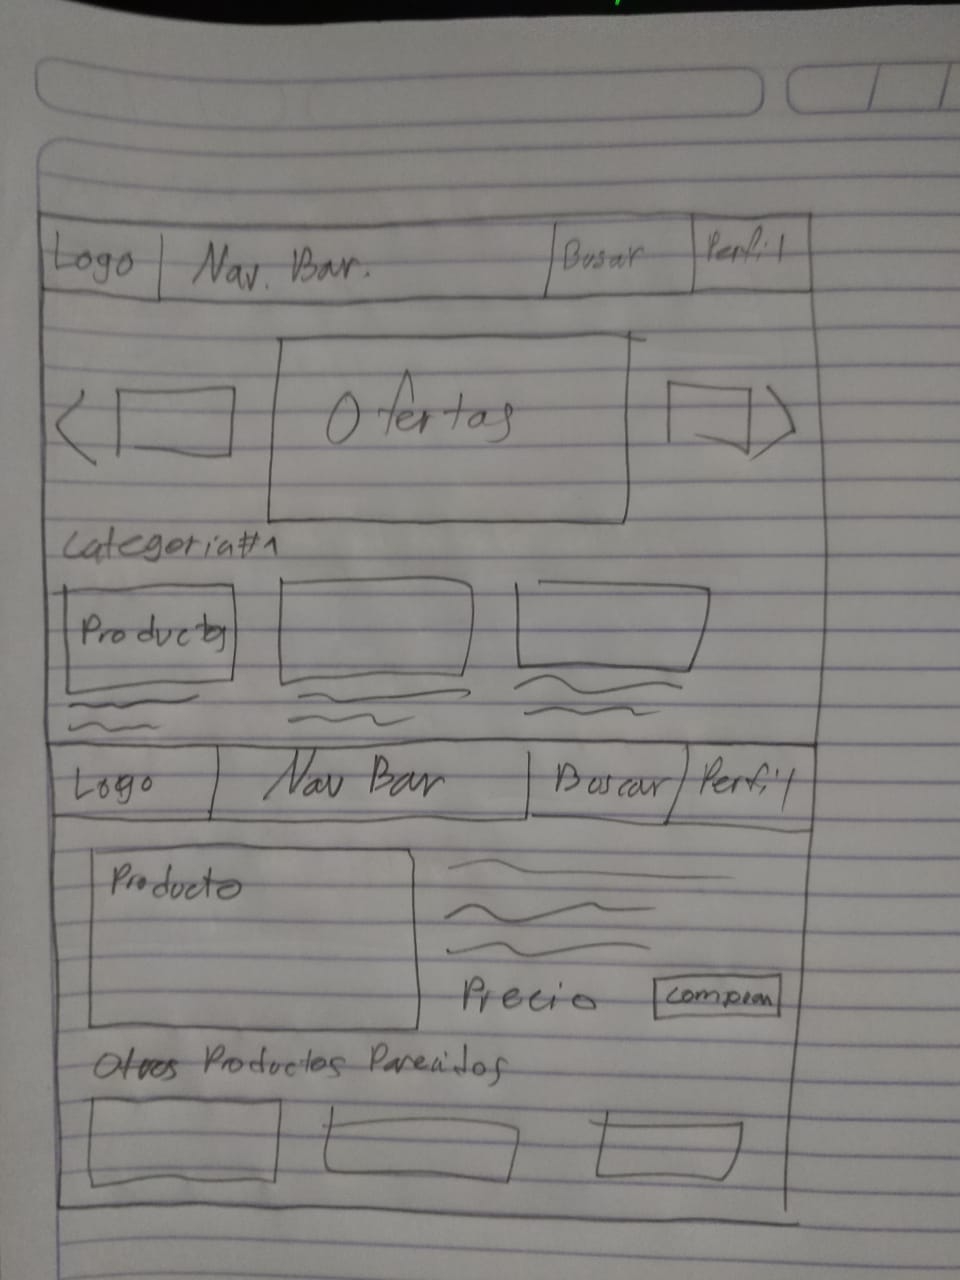 Logo Nav. Bar. Busar Perfil
Ofertas
Categoria#1
Producto
Logo Nav Bar Buscar Perfil
Producto
Precio comprar
Otros Productos Parecidos